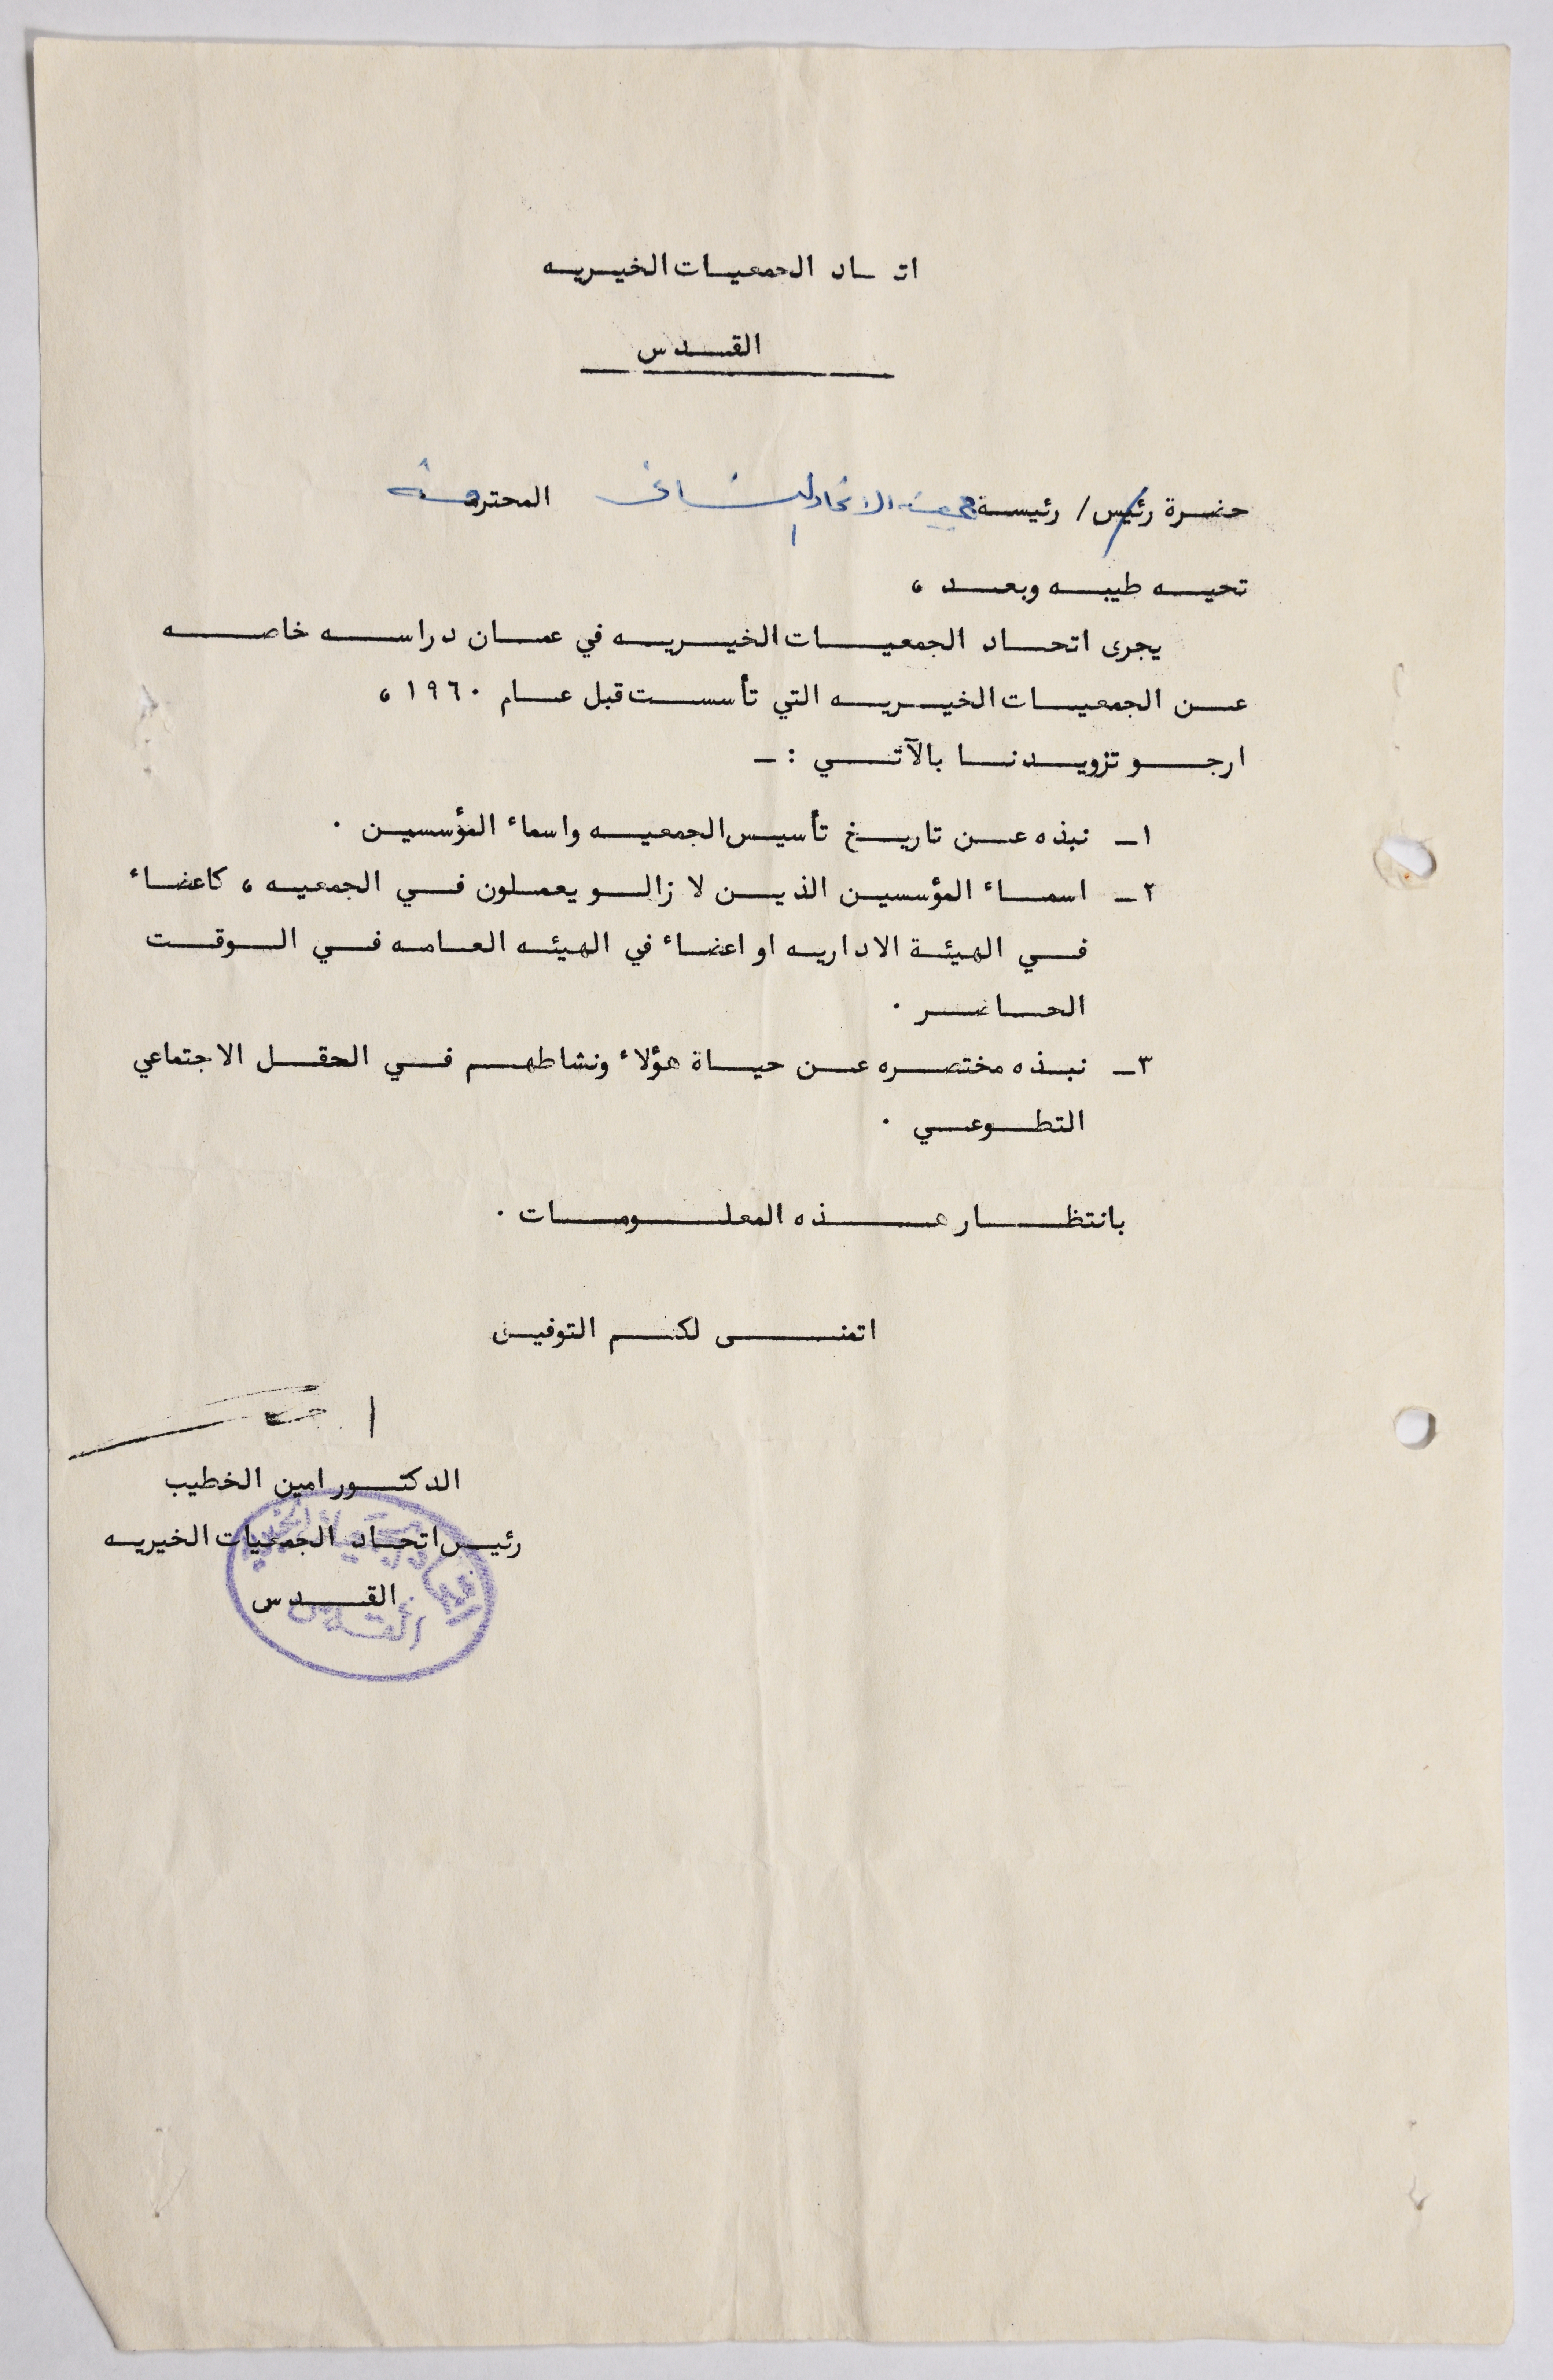 اتحاد الجمعيات الخيريه
القدس
حضرة رئيس / رئيسة جمعية الاتحاد النسائي المحترمة
تحيه طيبه وبعد ،
يجرى اتحاد الجمعيات الخيريه في عمان دراسه خاصه
عن الجمعيات الخيريه التي تأسست قبل عام ١٩٦٠ ،
ارجو تزويدنا بالآتي :ـ
١ـ نبذه عن تاريخ تأسيس الجمعيه واسماء المؤسسين .
٢ـ اسماء المؤسسين الذين لا زالو يعملون في الجمعيه ، كاعضاء
في الهيئة الاداريه او اعضاء في الهيئه العامه في الوقت
الحاضر .
٣ـ نبذه مختصره عن حياة هؤلاء ونشاطهم في الحقل الاجتماعي
التطوعي .
بانتظار هذه المعلومات .
اتمنى لكم التوفيق
الدكتور امين الخطيب
رئيس اتحاد الجمعيات الخيريه
القدس
اتحاد الجمعيات الخيرية
القدس